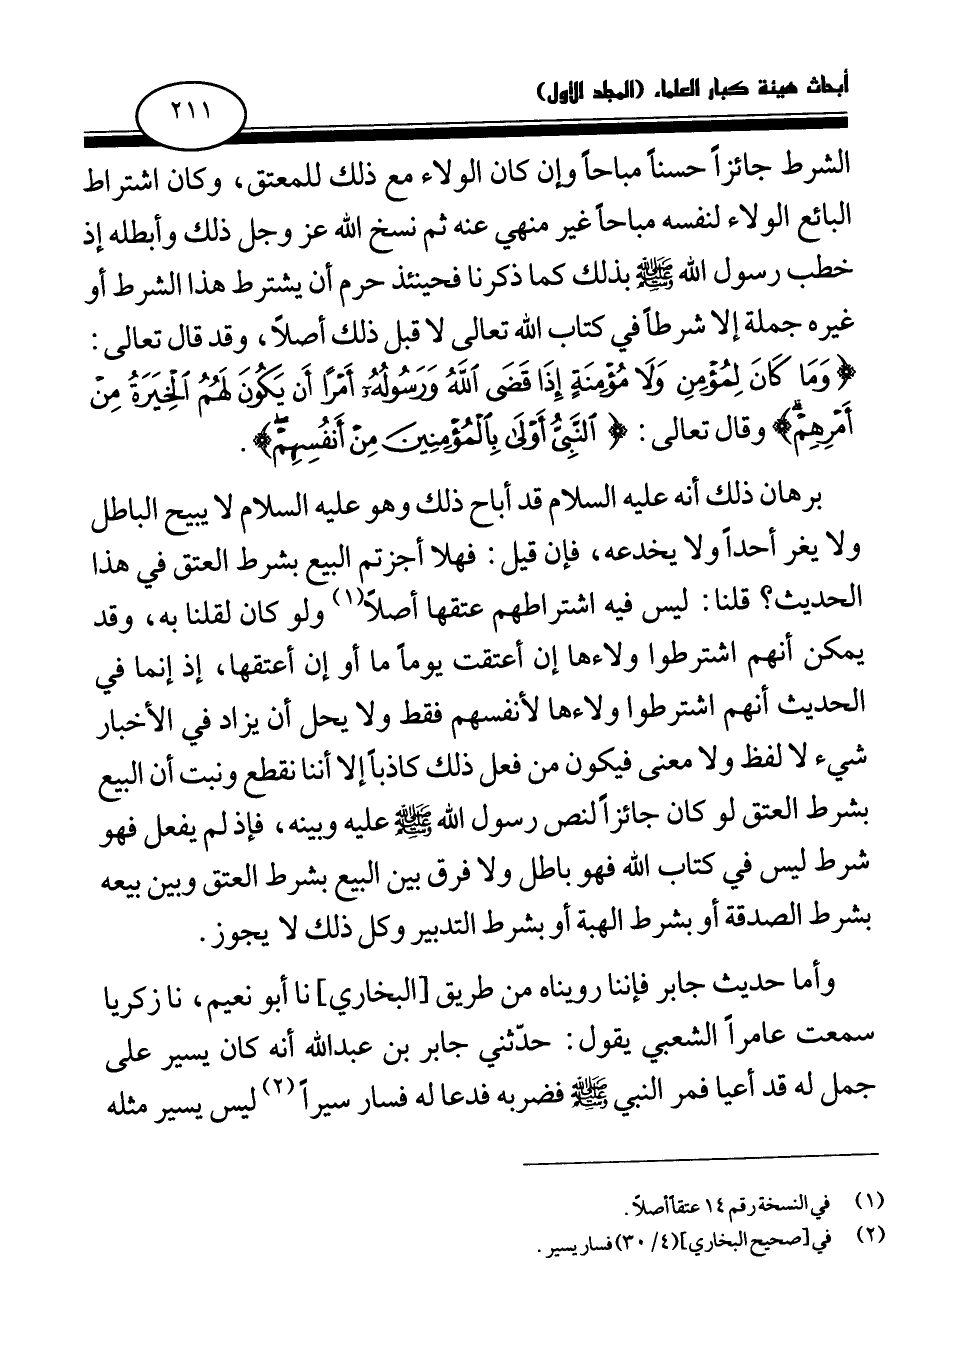 أبحاث هيئة كبار العلماء (المجلد الأول)
٢١١
الشرط جائزاً حسناً مباحاً وإن كان الولاء مع ذلك للمعتق، وكان اشتراط
البائع الولاء لنفسه مباحاً غير منهي عنه ثم نسخ الله عز وجل ذلك وأبطله إذ
خطب رسول الله ﷺ بذلك كما ذكرنا فحينئذ حرم أن يشترط هذا الشرط أو
غيره جملة إلا شرطاً في كتاب الله تعالى لا قبل ذلك أصلاً، وقد قال تعالى:
﴿ وَمَا كَانَ لِمُؤْمِنٍ وَلَا مُؤْمِنَةٍ إِذَا قَضَى اللَّهُ وَرَسُولُهُۥٓ أَمْرًا أَن يَكُونَ لَهُمُ الْخِيَرَةُ مِنْ
أَمْرِهِمْ ۗ﴾ وقال تعالى: ﴿ النَّبِيُّ أَوْلَىٰ بِالْمُؤْمِنِينَ مِنْ أَنفُسِهِمْ ۖ﴾.
برهان ذلك أنه عليه السلام قد أباح ذلك وهو عليه السلام لا يبيح الباطل
ولا يغر أحداً ولا يخدعه، فإن قيل: فهلا أجزتم البيع بشرط العتق في هذا
الحديث؟ قلنا: ليس فيه اشتراطهم عتقها أصلاً(١) ولو كان لقلنا به، وقد
يمكن أنهم اشترطوا ولاءها إن أعتقت يوماً ما أو إن أعتقها، إذ إنما في
الحديث أنهم اشترطوا ولاءها لأنفسهم فقط ولا يحل أن يزاد في الأخبار
شيء لا لفظ ولا معنى فيكون من فعل ذلك كاذباً إلا أننا نقطع ونبت أن البيع
بشرط العتق لو كان جائزاً لنص رسول الله ﷺ عليه وبينه، فإذ لم يفعل فهو
شرط ليس في كتاب الله فهو باطل ولا فرق بين البيع بشرط العتق وبين بيعه
بشرط الصدقة أو بشرط الهبة أو بشرط التدبير وكل ذلك لا يجوز.
وأما حديث جابر فإننا رويناه من طريق [البخاري] نا أبو نعيم، نا زكريا
سمعت عامراً الشعبي يقول: حدّثني جابر بن عبدالله أنه كان يسير على
جمل له قد أعيا فمر النبي ﷺ فضربه فدعا له فسار سيراً(٢) ليس يسير مثله
(١) في النسخة رقم ١٤ عتقاً أصلاً.
(٢) في [صحيح البخاري] (٤/ ٣٠) فسار يسير.